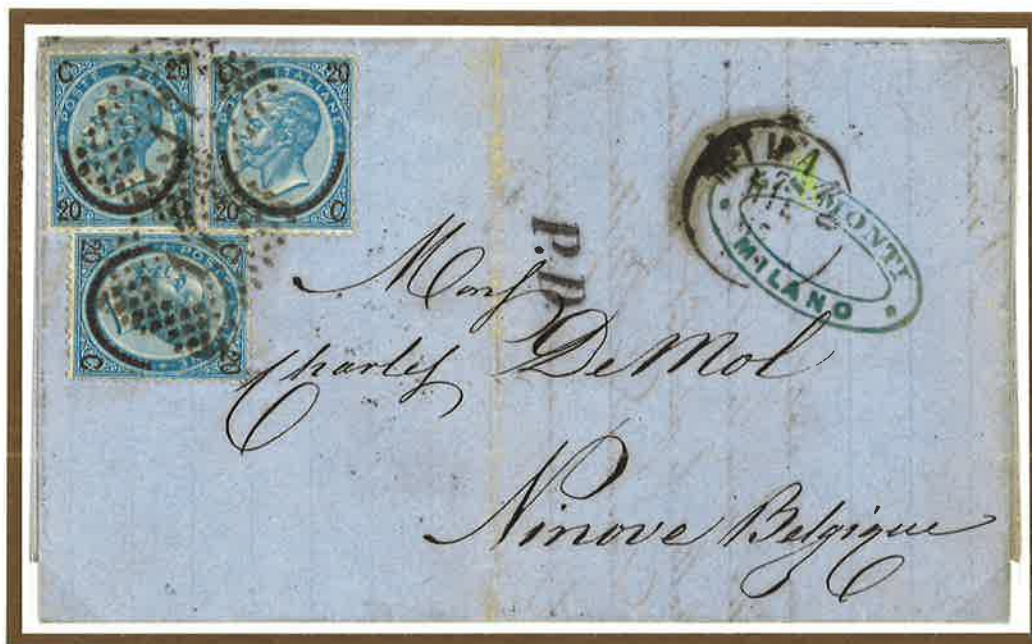 C 20
POSTE ITALIANE
20 C
C 20
POSTE ITALIANE
20 C
P.D.
A. MONTI
MILANO
Mons
Charles De Mol
Ninove Belgique